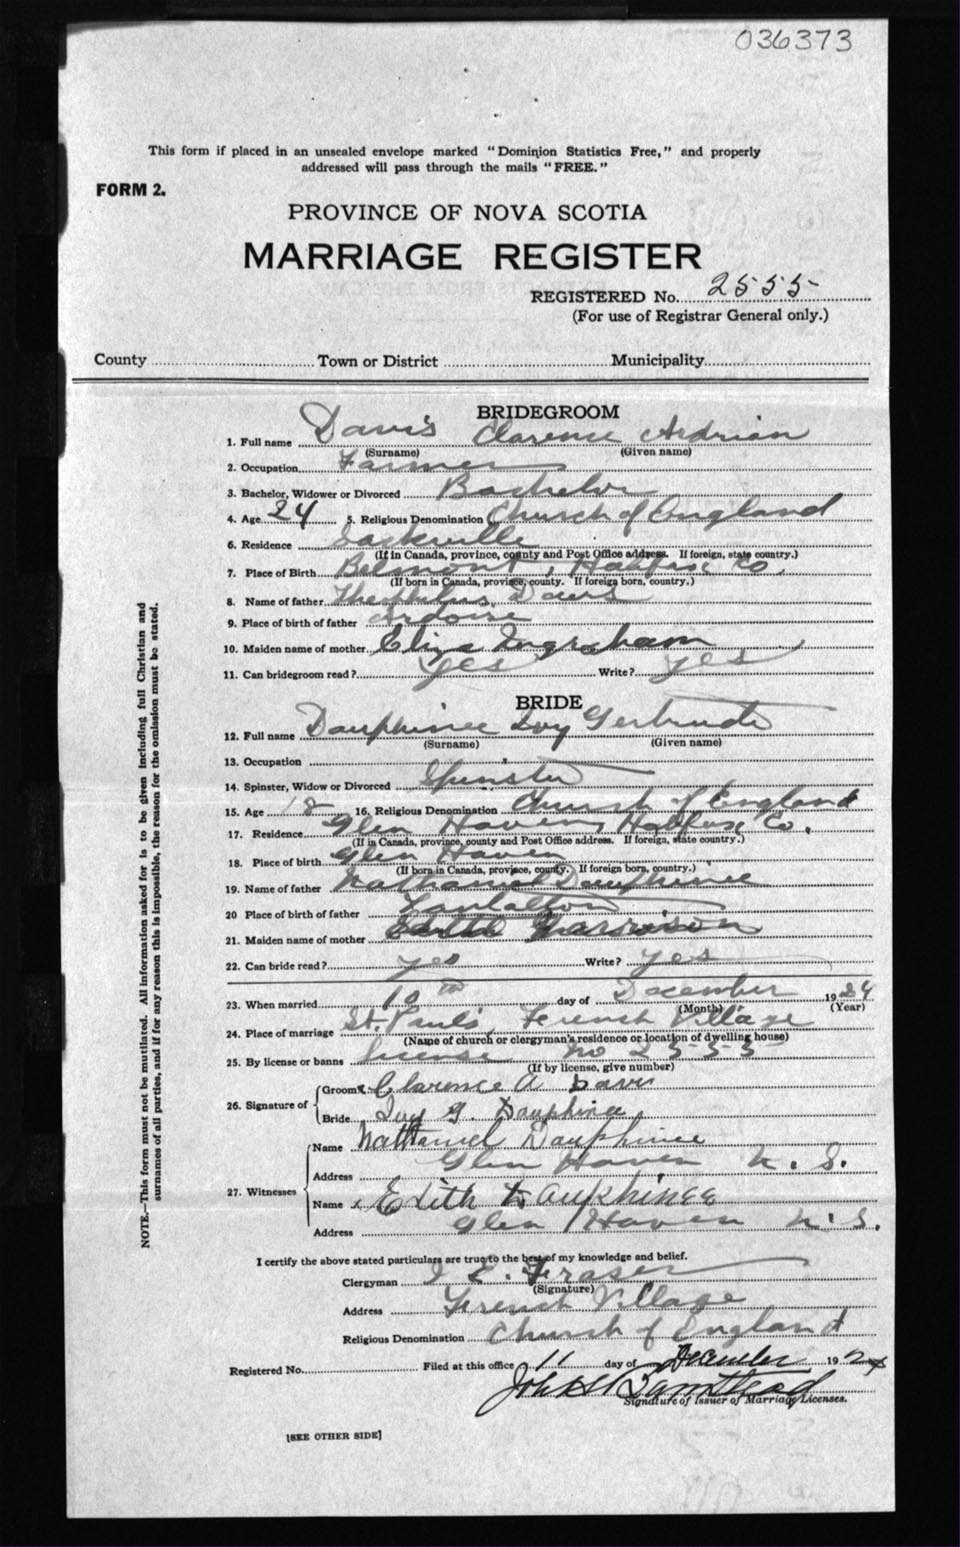 036373
This form if placed in an unsealed envelope marked "Dominion Statistics Free," and properly
addressed will pass through the mails "FREE."
FORM 2.
PROVINCE OF NOVA SCOTIA
MARRIAGE REGISTER
REGISTERED No. 2555
(For use of Registrar General only.)
County Town or District Municipality
BRIDEGROOM
1. Full name Davis Clarence Adrian
(Surname) (Given name)
2. Occupation Farmer
3. Bachelor, Widower or Divorced Bachelor
4. Age 24 5. Religious Denomination Church of England
6. Residence Sackville
(If in Canada, province, county and Post Office address. If foreign, state country.)
7. Place of Birth Belmont, Halifax Co.
(If born in Canada, province, county. If foreign born, country.)
8. Name of father Davis
9. Place of birth of father Ardoise
10. Maiden name of mother Eliza Ingraham
11. Can bridegroom read? yes Write? yes
BRIDE
12. Full name Dauphinee Ivy Gertrude
(Surname) (Given name)
13. Occupation
14. Spinster, Widow or Divorced Spinster
15. Age 18 16. Religious Denomination Church of England
17. Residence Glen Haven, Halifax Co.
(If in Canada, province, county and Post Office address. If foreign, state country.)
18. Place of birth Glen Haven
(If born in Canada, province, county. If foreign born, country.)
19. Name of father Nathaniel Dauphinee
20 Place of birth of father Tantallon
21. Maiden name of mother Edith Garrison
22. Can bride read? yes Write? yes
23. When married 10th day of December 1924
(Month) (Year)
24. Place of marriage St. Paul's, French Village
(Name of church or clergyman's residence or location of dwelling house)
25. By license or banns license no 2555
(If by license, give number)
26. Signature of Groom Clarence A Davis
Bride Ivy G. Dauphinee
27. Witnesses Name Nathaniel Dauphinee
Address Glen Haven N. S.
Name Edith Dauphinee
Address Glen Haven N. S.
I certify the above stated particulars are true to the best of my knowledge and belief.
Clergyman E. Fraser
(Signature)
Address French Village
Religious Denomination Church of England
Registered No. Filed at this office 11 day of December 1924
John
Signature of Issuer of Marriage Licenses.
[SEE OTHER SIDE]
NOTE.—This form must not be mutilated. All information asked for is to be given including full Christian and
surnames of all parties, and if for any reason this is impossible, the reason for the omission must be stated.